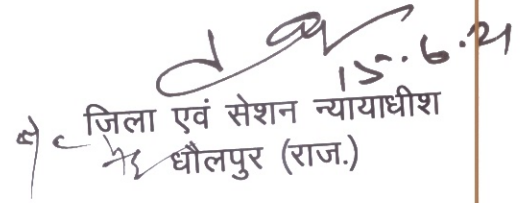 15.6.21
जिला एवं सेशन न्यायाधीश
धौलपुर (राज.)